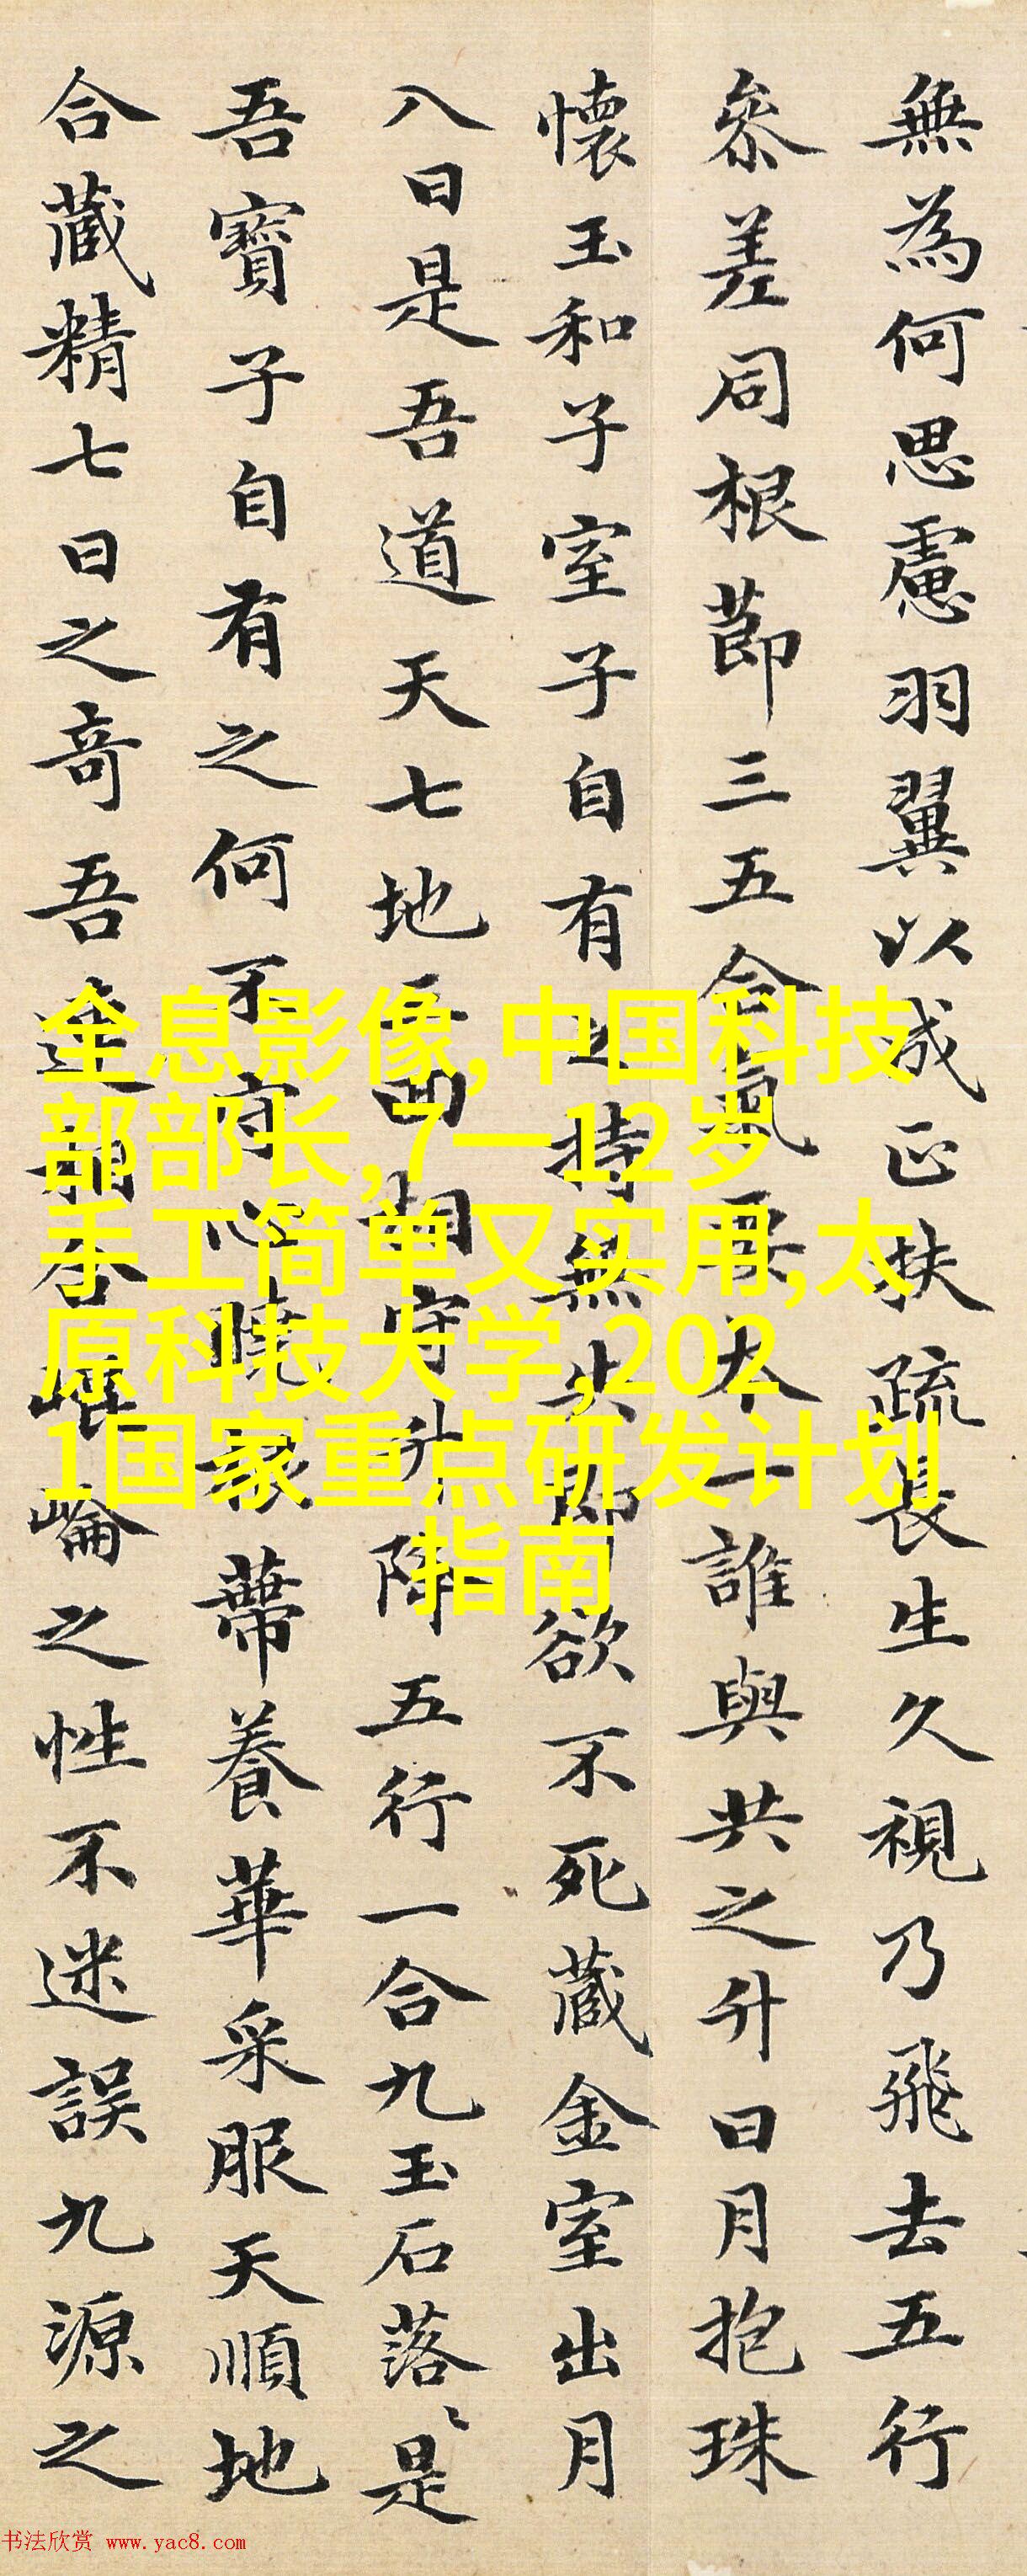 無為何思慮羽翼以成正扶疏長生久視乃飛去五行
參差同根節三五合氣要本一誰與共之升日月抱珠
懷玉和子室子自有之持無失即欲不死藏金室出月
八日是吾道天七地三回相守升降五行一合九玉石落〻是
吾寶子自有之何不守心曉根蔕養華采服天順地
合藏精七日之奇吾連相合崐崘之性不迷誤九源之
全息影像,中国科技
部部长,7一12岁
手工简单又实用,太
原科技大学,202
1国家重点研发计划
指南
书法欣赏 www.yac8.com